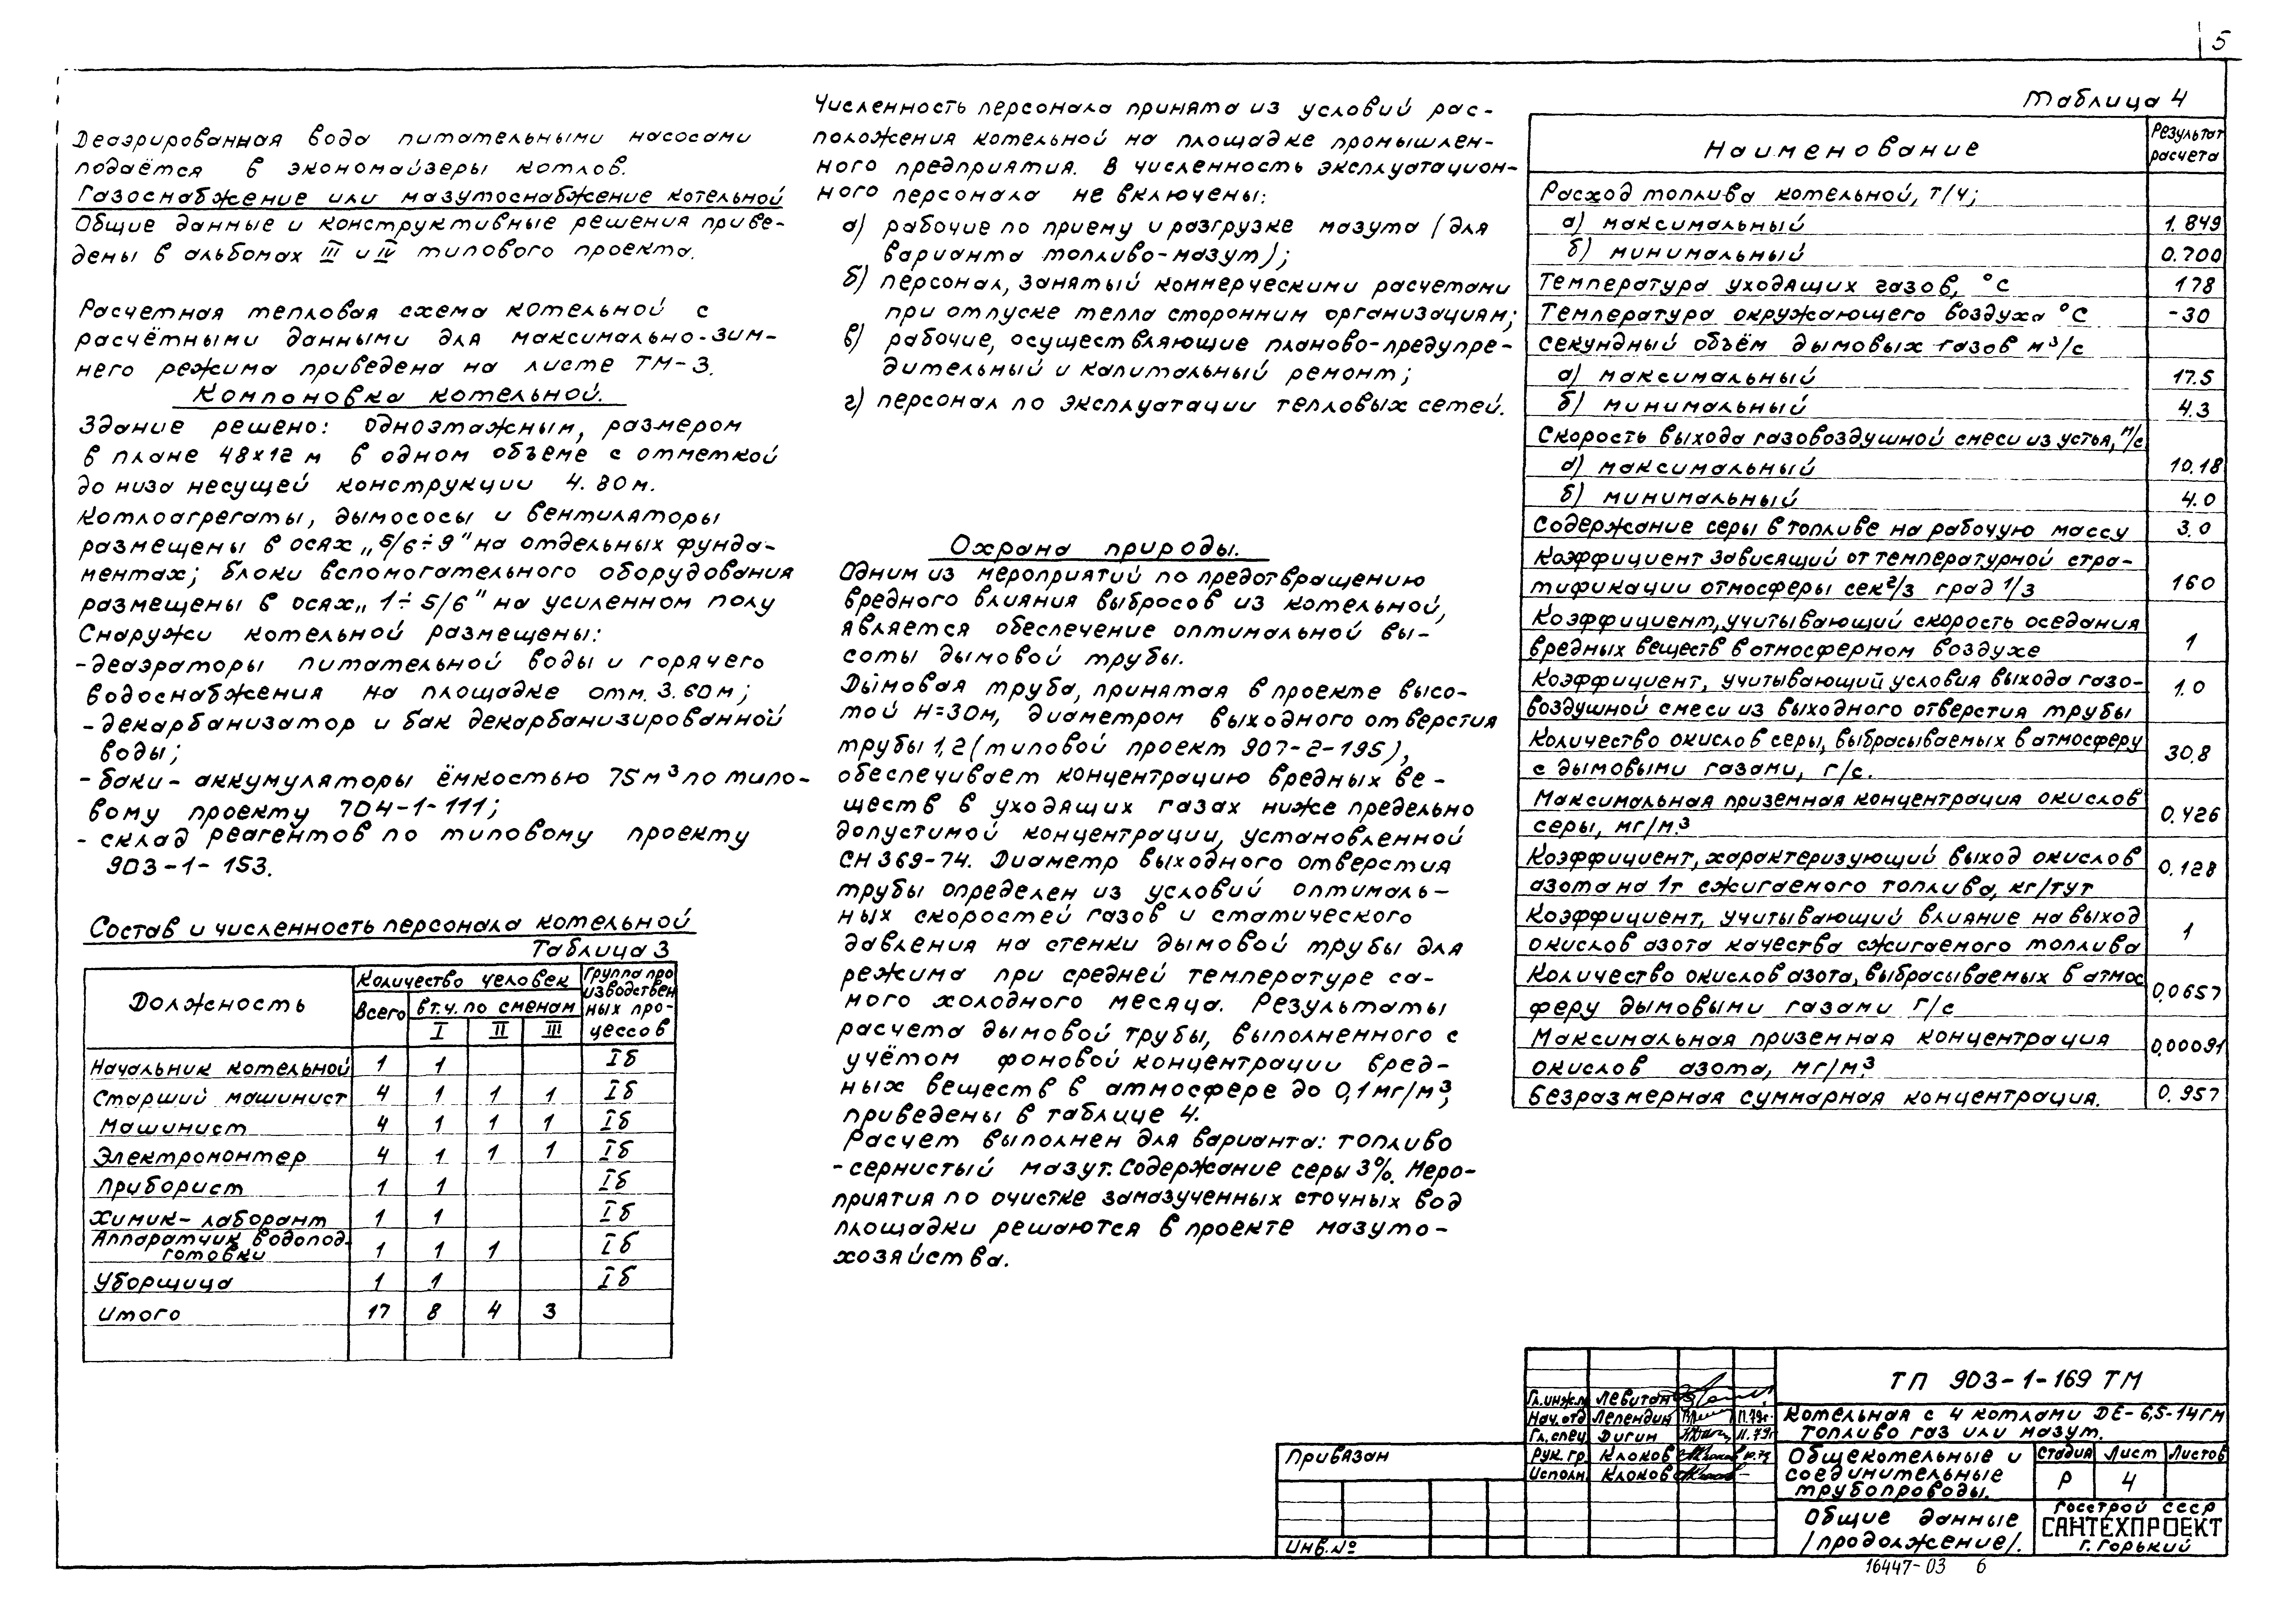 5
Деаэрированная вода питательными насосами
подаётся в экономайзеры котлов.
Газоснабжение или мазутоснабжение котельной
Общие данные и конструктивные решения приве-
дены в альбомах III и IV типового проекта.
Расчетная тепловая схема котельной с
расчётными данными для максимально-зим-
него режима приведена на листе ТМ-3.
Компоновка котельной.
Здание решено: одноэтажным, размером
в плане 48х12 м в одном объеме с отметкой
до низа несущей конструкции 4.80м.
Котлоагрегаты, дымососы и вентиляторы
размещены в осях „5/6÷9" на отдельных фунда-
ментах; блоки вспомогательного оборудования
размещены в осях „1÷5/6" на усиленном полу
Снаружи котельной размещены:
-деаэраторы питательной воды и горячего
водоснабжения на площадке отм. 3.60м;
-декарбанизатор и бак декарбанизированной
воды;
-баки-аккумуляторы ёмкостью 75м³ по типо-
вому проекту 704-1-111;
- склад реагентов по типовому проекту
903-1-153.
Состав и численность персонала котельной
Таблица 3
Должность | Количество человек | Группа про
изводствен
Всего | в т.ч. по сменам | ных про-
I | II | III | цессов
Начальник котельной | 1 | 1 | | | Iб
Старший машинист | 4 | 1 | 1 | 1 | Iб
Машинист | 4 | 1 | 1 | 1 | Iб
Электромонтер | 4 | 1 | 1 | 1 | Iб
Приборист | 1 | 1 | | | Iб
Химик-лаборант | 1 | 1 | | | Iб
Аппаратчик водопод-
готовки | 1 | 1 | 1 | | Iб
Уборщица | 1 | 1 | | | Iб
Итого | 17 | 8 | 4 | 3
Численность персонала принята из условий рас-
положения котельной на площадке промышлен-
ного предприятия. В численность эксплуатацион-
ного персонала не включены:
а) рабочие по приему и разгрузке мазута (для
варианта топливо-мазут);
б) персонал, занятый коммерческими расчетами
при отпуске тепла сторонним организациям;
в) рабочие, осуществляющие планово-предупре-
дительный и капитальный ремонт;
г) персонал по эксплуатации тепловых сетей.
Охрана природы.
Одним из мероприятий по предотвращению
вредного влияния выбросов из котельной,
является обеспечение оптимальной вы-
соты дымовой трубы.
Дымовая труба, принятая в проекте высо-
той Н=30м, диаметром выходного отверстия
трубы 1,2 (типовой проект 907-2-195),
обеспечивает концентрацию вредных ве-
ществ в уходящих газах ниже предельно
допустимой концентрации, установленной
СН 369-74. Диаметр выходного отверстия
трубы определен из условий оптималь-
ных скоростей газов и статического
давления на стенки дымовой трубы для
режима при средней температуре са-
мого холодного месяца. Результаты
расчета дымовой трубы, выполненного с
учётом фоновой концентрации вред-
ных веществ в атмосфере до 0,1 мг/м³,
приведены в таблице 4.
Расчет выполнен для варианта: топливо
-сернистый мазут. Содержание серы 3%. Меро-
приятия по очистке замазученных сточных вод
площадки решаются в проекте мазуто-
хозяйства.
Таблица 4
Наименование | Результат
расчета
Расход топлива котельной, т/ч;
а) максимальный | 1.849
б) минимальный | 0.700
Температура уходящих газов, °С | 178
Температура окружающего воздуха °С | -30
секундный объём дымовых газов м³/с
а) максимальный | 17.5
б) минимальный | 4.3
Скорость выхода газовоздушной смеси из устья, м/с
а) максимальный | 10.18
б) минимальный | 4.0
Содержание серы в топливе на рабочую массу | 3.0
Коэффициент зависящий от температурной стра-
тификации атмосферы сек2/3 град 1/3 | 160
Коэффициент, учитывающий скорость оседания
вредных веществ в атмосферном воздухе | 1
Коэффициент, учитывающий условия выхода газо-
воздушной смеси из выходного отверстия трубы | 1.0
Количество окислов серы, выбрасываемых в атмосферу
с дымовыми газами, г/с. | 30.8
Максимальная приземная концентрация окислов
серы, мг/м³ | 0.426
Коэффициент, характеризующий выход окислов
азота на 1т сжигаемого топлива, кг/тут | 0.128
Коэффициент, учитывающий влияние на выход
окислов азота качества сжигаемого топлива | 1
Количество окислов азота, выбрасываемых в атмос
феру дымовыми газами г/с | 0,0657
Максимальная приземная концентрация
окислов азота, мг/м³ | 0,00091
Безразмерная суммарная концентрация. | 0.957
Привязан
Инв.№
Гл.инж. Левитан
Нач.отд Лепендин 11.79г.
Гл.спец Дигин 11.79г
Рук.гр. Клоков
Исполн. Клоков
ТП 903-1-169 ТМ
Котельная с 4 котлами ДЕ-6,5-14ГМ
Топливо газ или мазут.
Общекотельные и
соединительные
трубопроводы.
Стадия | Лист | Листов
Р | 4
Общие данные
/продолжение/.
Госстрой СССР
САНТЕХПРОЕКТ
г. Горький
16447-03 6